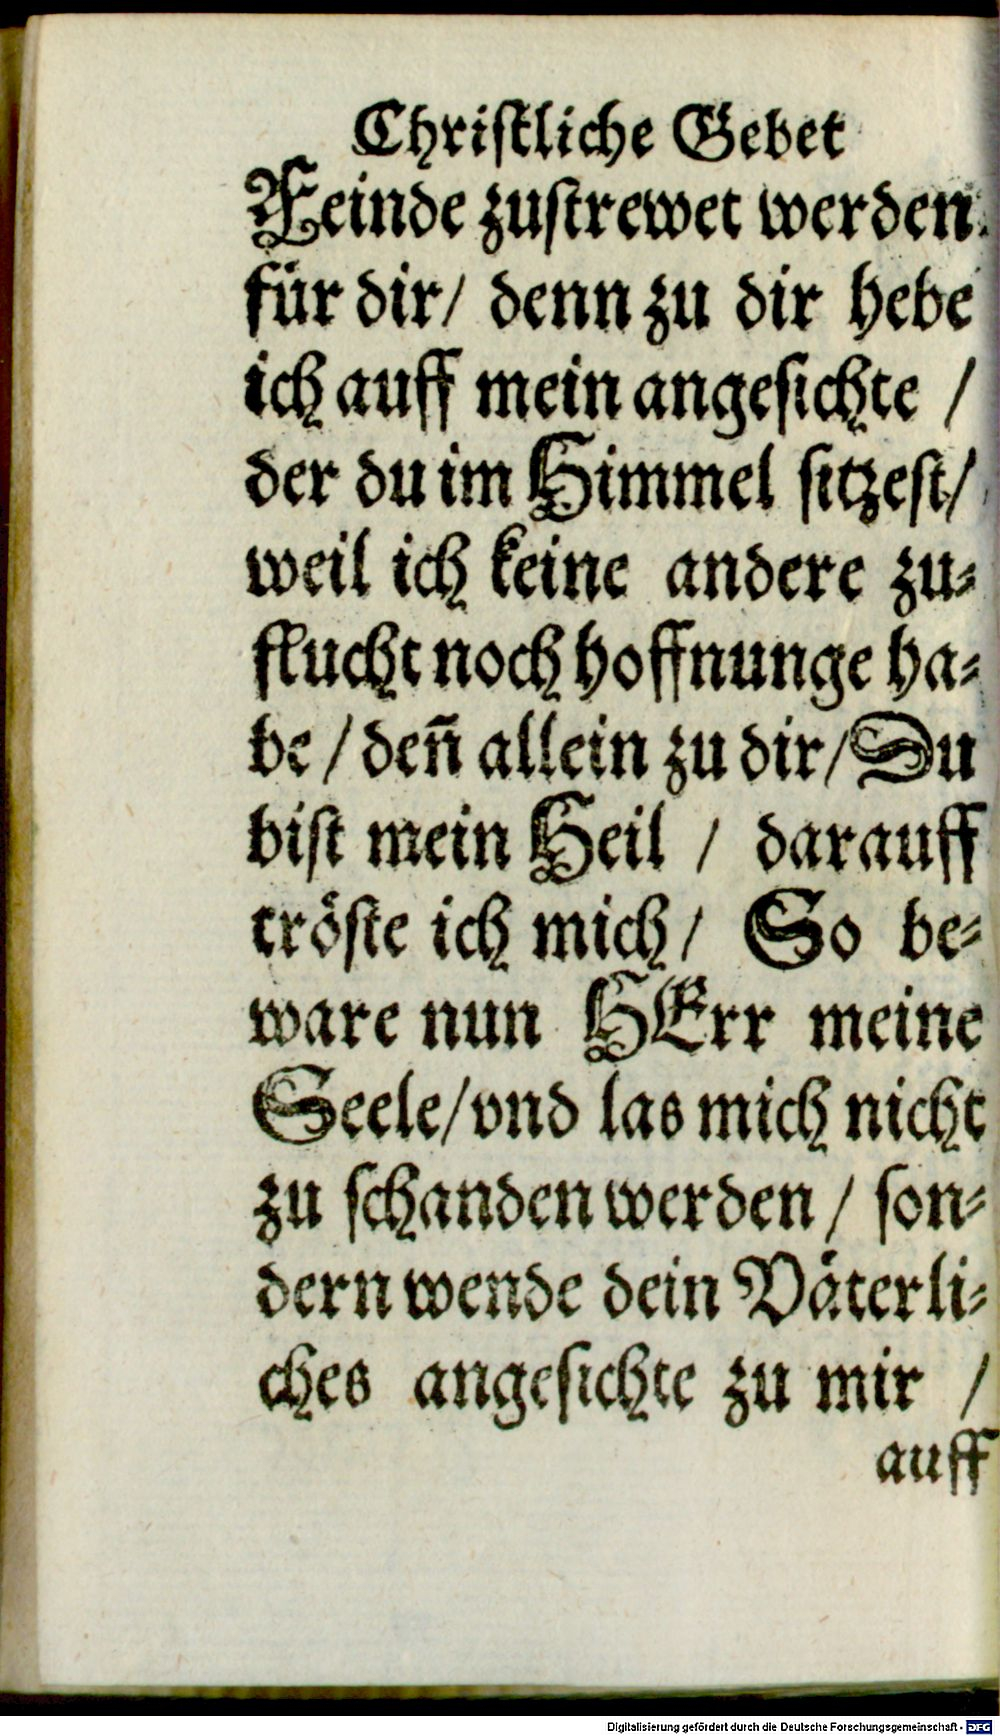 Chriſtliche Gebet
Feinde zuſtrewet werden
für dir/ denn zu dir hebe
ich auff mein angeſichte /
der du im Himmel ſitzeſt/
weil ich keine andere zu⸗
flucht noch hoffnunge ha⸗
be / deñ allein zu dir/ Du
biſt mein Heil / darauff
tröſte ich mich / So be⸗
ware nun HErr meine
Seele/ vnd las mich nicht
zu ſchanden werden / ſon⸗
dern wende dein Väterli⸗
ches angeſichte zu mir /
auff
Digitalisierung gefördert durch die Deutsche Forschungsgemeinschaft - DFG